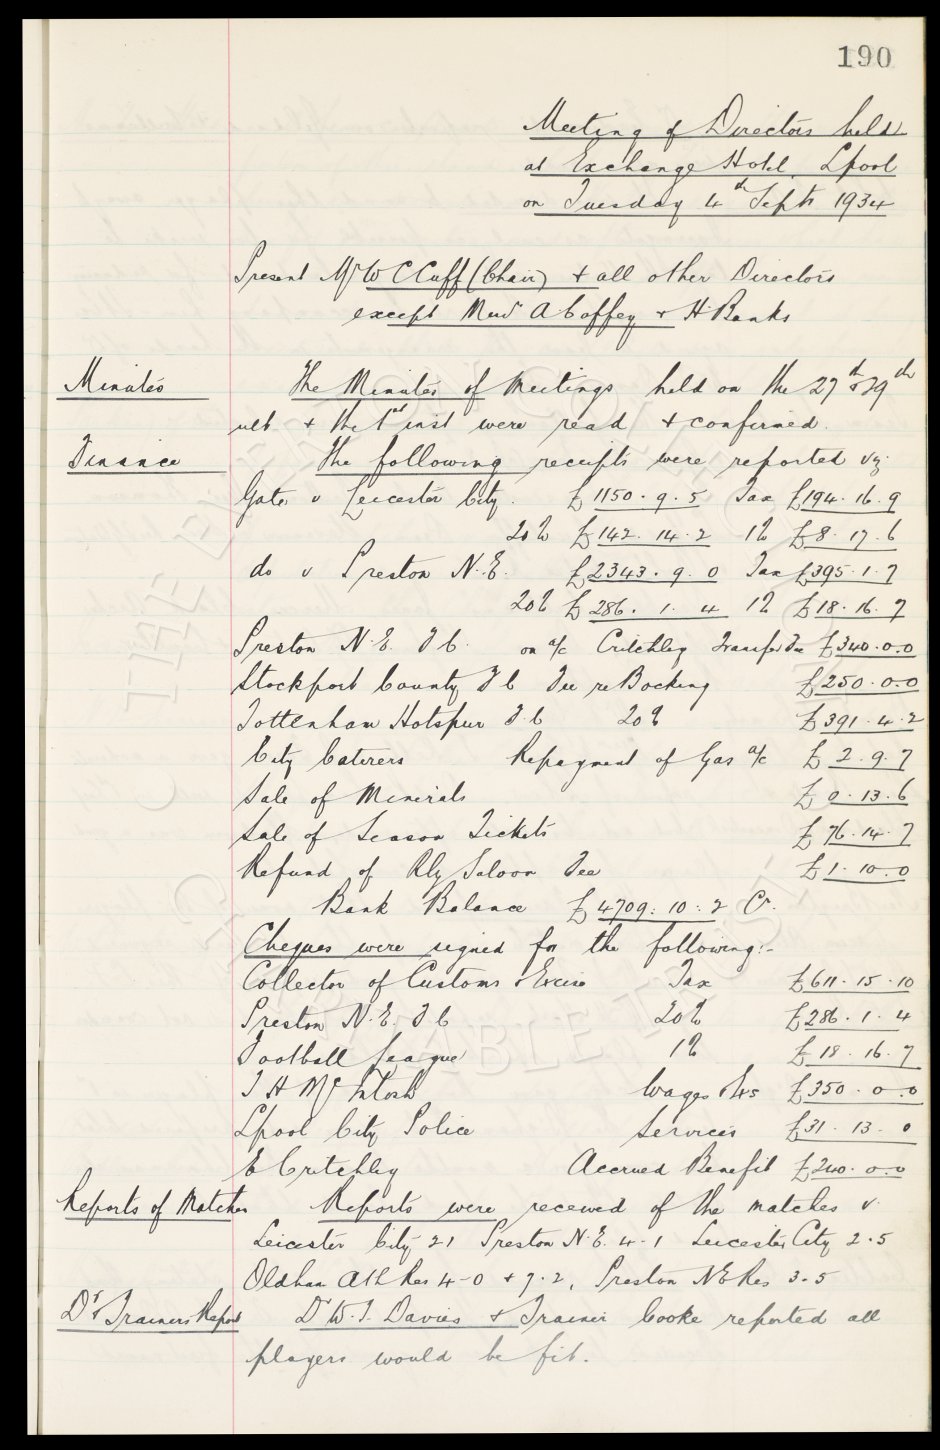 190
Meeting of Directors held
at Exchange Hotel, Lpool
on Tuesday 4th Septr 1934
Present Mr W C Cuff (Chair) & all other Directors
except Messrs A Coffey & H Banks
Minutes The Minutes of Meetings held on the 27th & 29th
ult & the 1st inst were read & confirmed.
Finance The following receipts were reported viz.
Gate v Leicester City. £1150.9.5 Tax £194.16.9
20% £142.14.2 1% £8.17.6
do v Preston N.E. £2343.9.0 Tax £395.1.7
20% £286.1.4 1% £18.16.7
Preston N.E. F.C. on a/c Critchley Transfer Fee £340.0.0
Stockport County F C Fee re Bocking £250.0.0
Tottenham Hotspur F.C 20% £391.4.2
City Caterers Repayment of Gas a/c £2.9.7
Sale of Minerals £0.13.6
Sale of Season Tickets £76.14.7
Refund of Rly Saloon Fee £1.10.0
Bank Balance £4709:10:2 Cr.
Cheques were signed for the following:-
Collector of Customs & Excise Tax £611.15.10
Preston N.E. F C 20% £286.1.4
Football League 1% £18.16.7
T H McIntosh Wages &c £350.0.0
Lpool City Police Services £31.13.0
E Critchley Accrued Benefit £240.0.0
Reports of Matches Reports were received of the matches v.
Leicester City 2 1 Preston N.E. 4-1 Leicester City 2.5
Oldham Ath Res 4-0 & 7.2, Preston NE Res 3-5
Dr & Trainers Report Dr W.T. Davies & Trainer Cooke reported all
players would be fit.
THE EVERTON COLLECTION
CHARITABLE TRUST